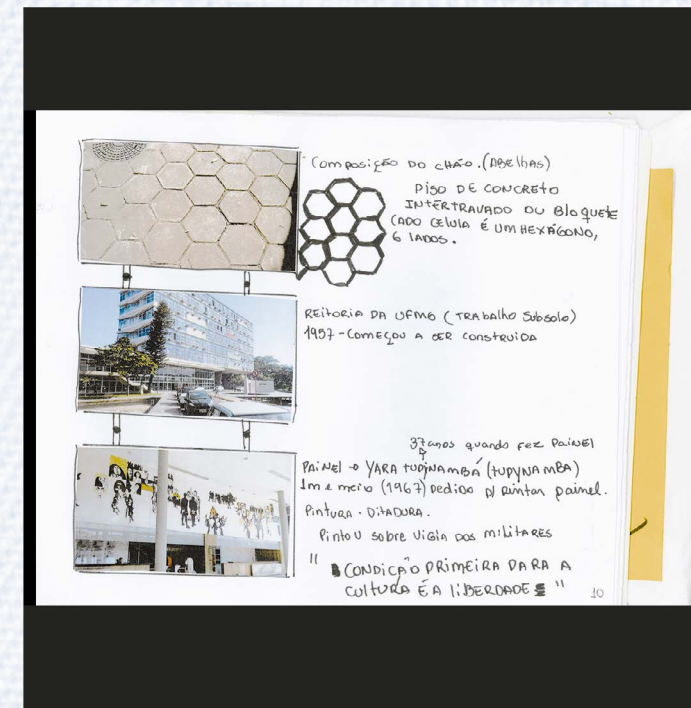 Composição do chão. (Abelhas)
PISO DE CONCRETO
INTERTRAVADO OU BLOQUETE
CADO CELULA É UM HEXÁGONO,
6 LADOS.
REITORIA DA UFMG (TRABALHO SUBSOLO)
1957 - COMEÇOU A SER CONSTRUIDA
37 anos quando fez PAINEL
PAINEL → YARA TUPYNAMBÁ (TUPYNAMBA)
1m e meio (1967) pedido p/ pintar painel.
PINTURA. DITADURA.
PINTOU SOBRE VIGIA DOS MILITARES
" CONDIÇÃO PRIMEIRA PARA A
CULTURA É A LIBERDADE "
10